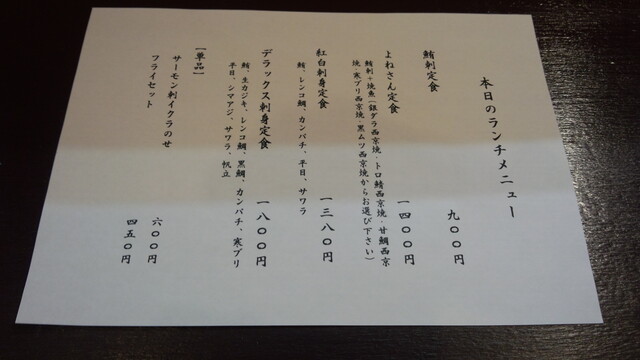 本日のランチメニュー
鮪刺定食　九〇〇円
よねさん定食　一四〇〇円
鮪刺+焼魚(銀ダラ西京焼・トロ鯖西京焼・甘鯛西京
焼・寒ブリ西京焼・黒ムツ西京焼からお選び下さい)
紅白刺身定食　一三八〇円
鮪、レンコ鯛、カンパチ、平目、サワラ
デラックス刺身定食　一八〇〇円
鮪、生カジキ、レンコ鯛、黒鯛、カンパチ、寒ブリ
平目、シマアジ、サワラ、帆立
【単品】
サーモン刺イクラのせ　六〇〇円
フライセット　四五〇円